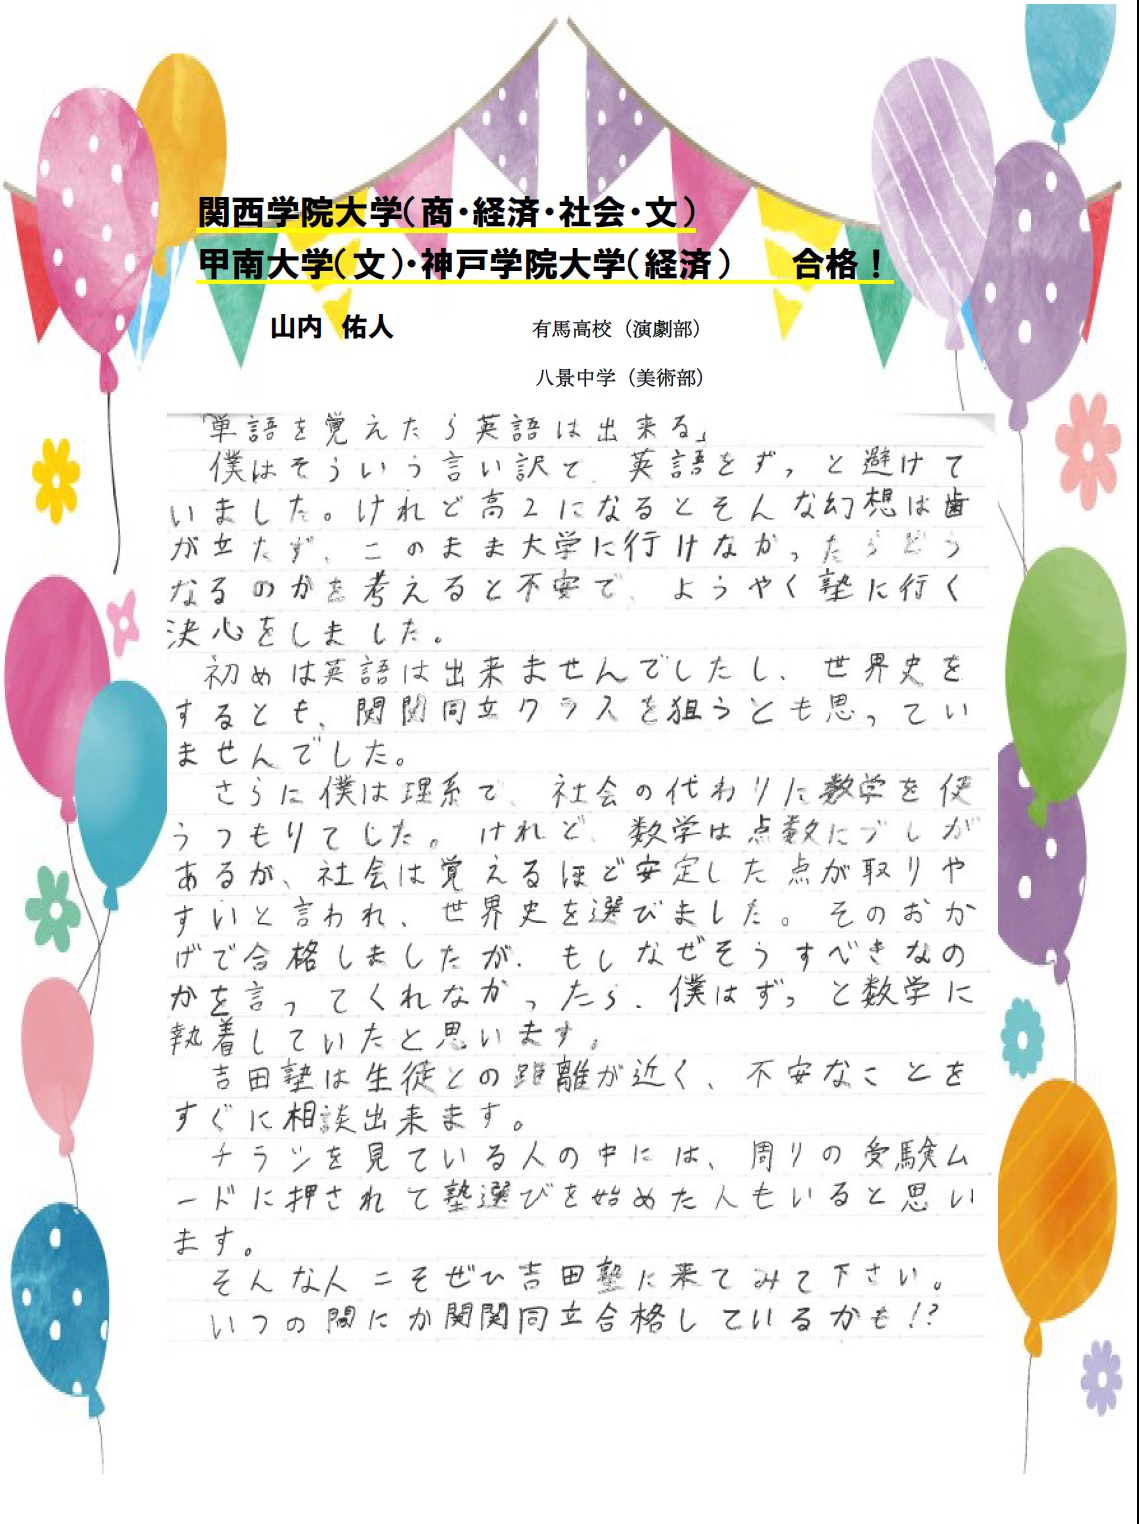 関西学院大学（商・経済・社会・文）
甲南大学（文）・神戸学院大学（経済）　合格！
山内　佑人　有馬高校（演劇部）
八景中学（美術部）
「単語を覚えたら英語は出来る」
僕はそういう言い訳で、英語をずっと避けて
いました。けれど高2になるとそんな幻想は歯
が立たず、このまま大学に行けなかったらどう
なるのかを考えると不安で、ようやく塾に行く
決心をしました。
初めは英語は出来ませんでしたし、世界史を
するとも、関関同立クラスを狙うとも思ってい
ませんでした。
さらに僕は理系で、社会の代わりに数学を使
うつもりでした。けれど、数学は点数にブレが
あるが、社会は覚えるほど安定した点が取りや
すいと言われ、世界史を選びました。そのおか
げで合格しましたが、もしなぜそうすべきなの
かを言ってくれなかったら、僕はずっと数学に
執着していたと思います。
吉田塾は生徒との距離が近く、不安なことを
すぐに相談出来ます。
チラシを見ている人の中には、周りの受験ム
ードに押されて塾選びを始めた人もいると思い
ます。
そんな人こそぜひ吉田塾に来てみて下さい。
いつの間にか関関同立合格しているかも!?